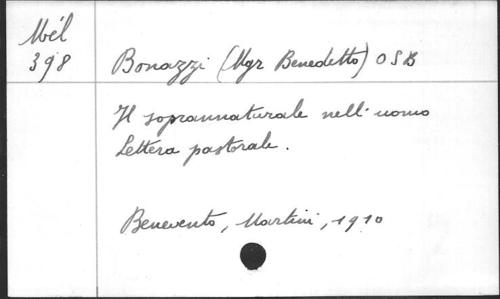 Mél
398
Bonazzi (Mgr Benedetto) OSB
Il soprannaturale nell'uomo
Lettera pastorale.
Benevento, Martini, 1910